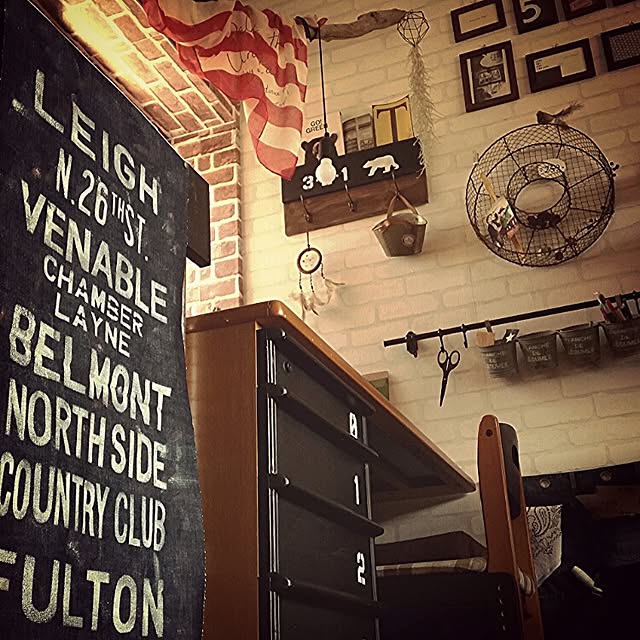 LEIGH
N. 26TH ST.
VENABLE
CHAMBER
LAYNE
BELMONT
NORTH SIDE
COUNTRY CLUB
FULTON
GO!
GREEN
T
3
1
5
0
1
2